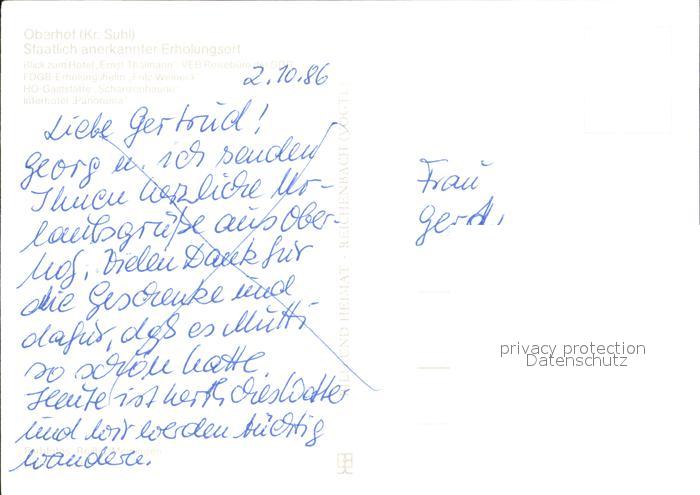 Oberhof (Kr. Suhl)
Staatlich anerkannter Erholungsort
Blick zum Hotel „Ernst Thälmann", VEB Reisebüro der DDR
FDGB-Erholungsheim „Fritz Weineck"
HO-Gaststätte „Schanzenbaude"
Interhotel „Panorama"
2.10.86
Liebe Gertrud!
Georg u. ich senden
Ihnen herzliche Ur-
laubsgrüße aus Ober-
hof. Vielen Dank für
die Geschenke und
dafür, daß es Mutti
so schön hatte.
Heute ist herrliches Wetter
und wir werden tüchtig
wandern.
BILD UND HEIMAT · REICHENBACH (VOGTL)
Frau
Gert
privacy protection
Datenschutz